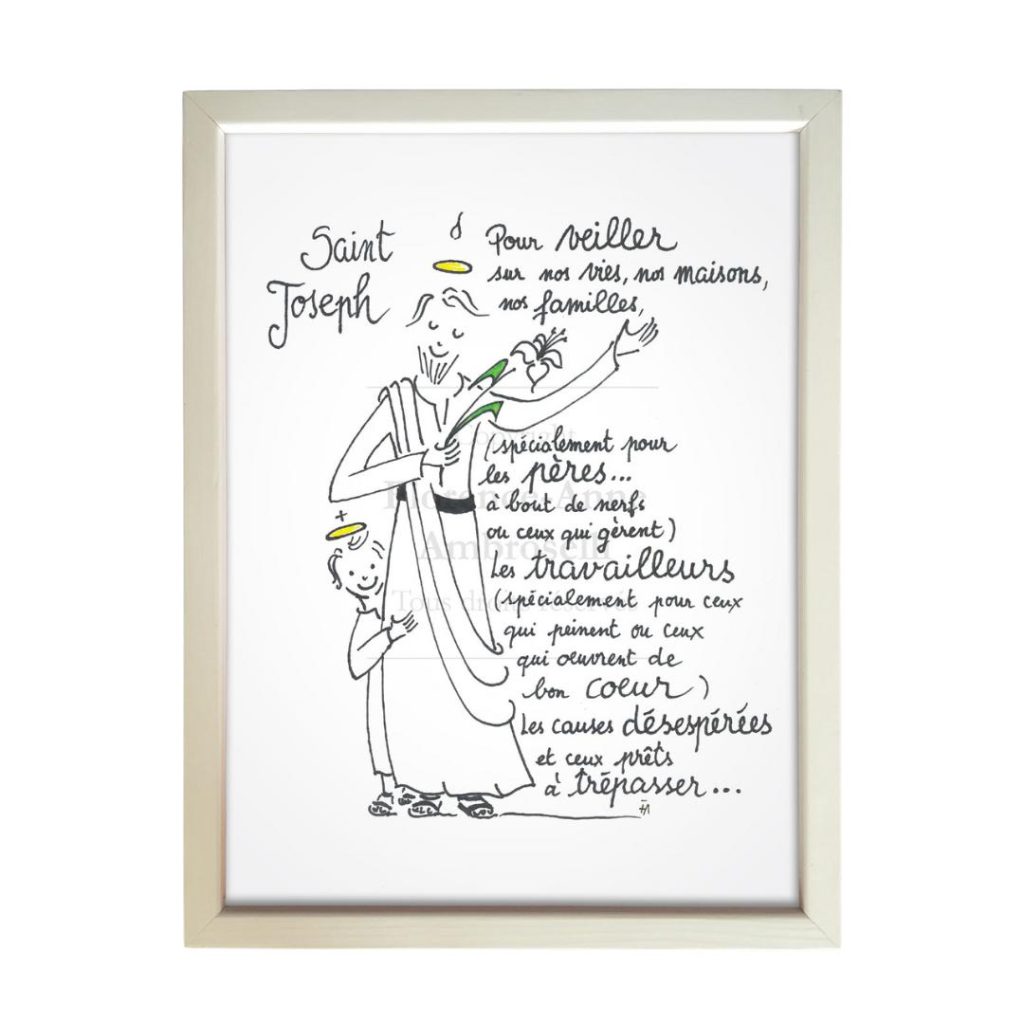 Saint
Joseph
Pour veiller
sur nos vies, nos maisons,
nos familles,
(spécialement pour
les pères...
à bout de nerfs
ou ceux qui gèrent)
Les travailleurs
(spécialement pour ceux
qui peinent ou ceux
qui oeuvrent de
bon coeur)
Les causes désespérées
et ceux prêts
à trépasser...
Copyright
Florence-Anne
Ambroselli
Tous droits réservés